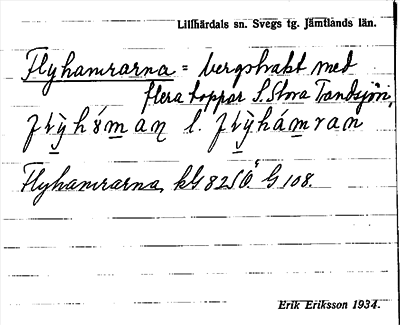 Lillhärdals sn. Svegs tg. Jämtlands län.
Flyhamrarna = bergstrakt med
flera toppar S. Stora Tandsjön,
l.
Flyhamrarna, G 108.
Erik Eriksson 1934.